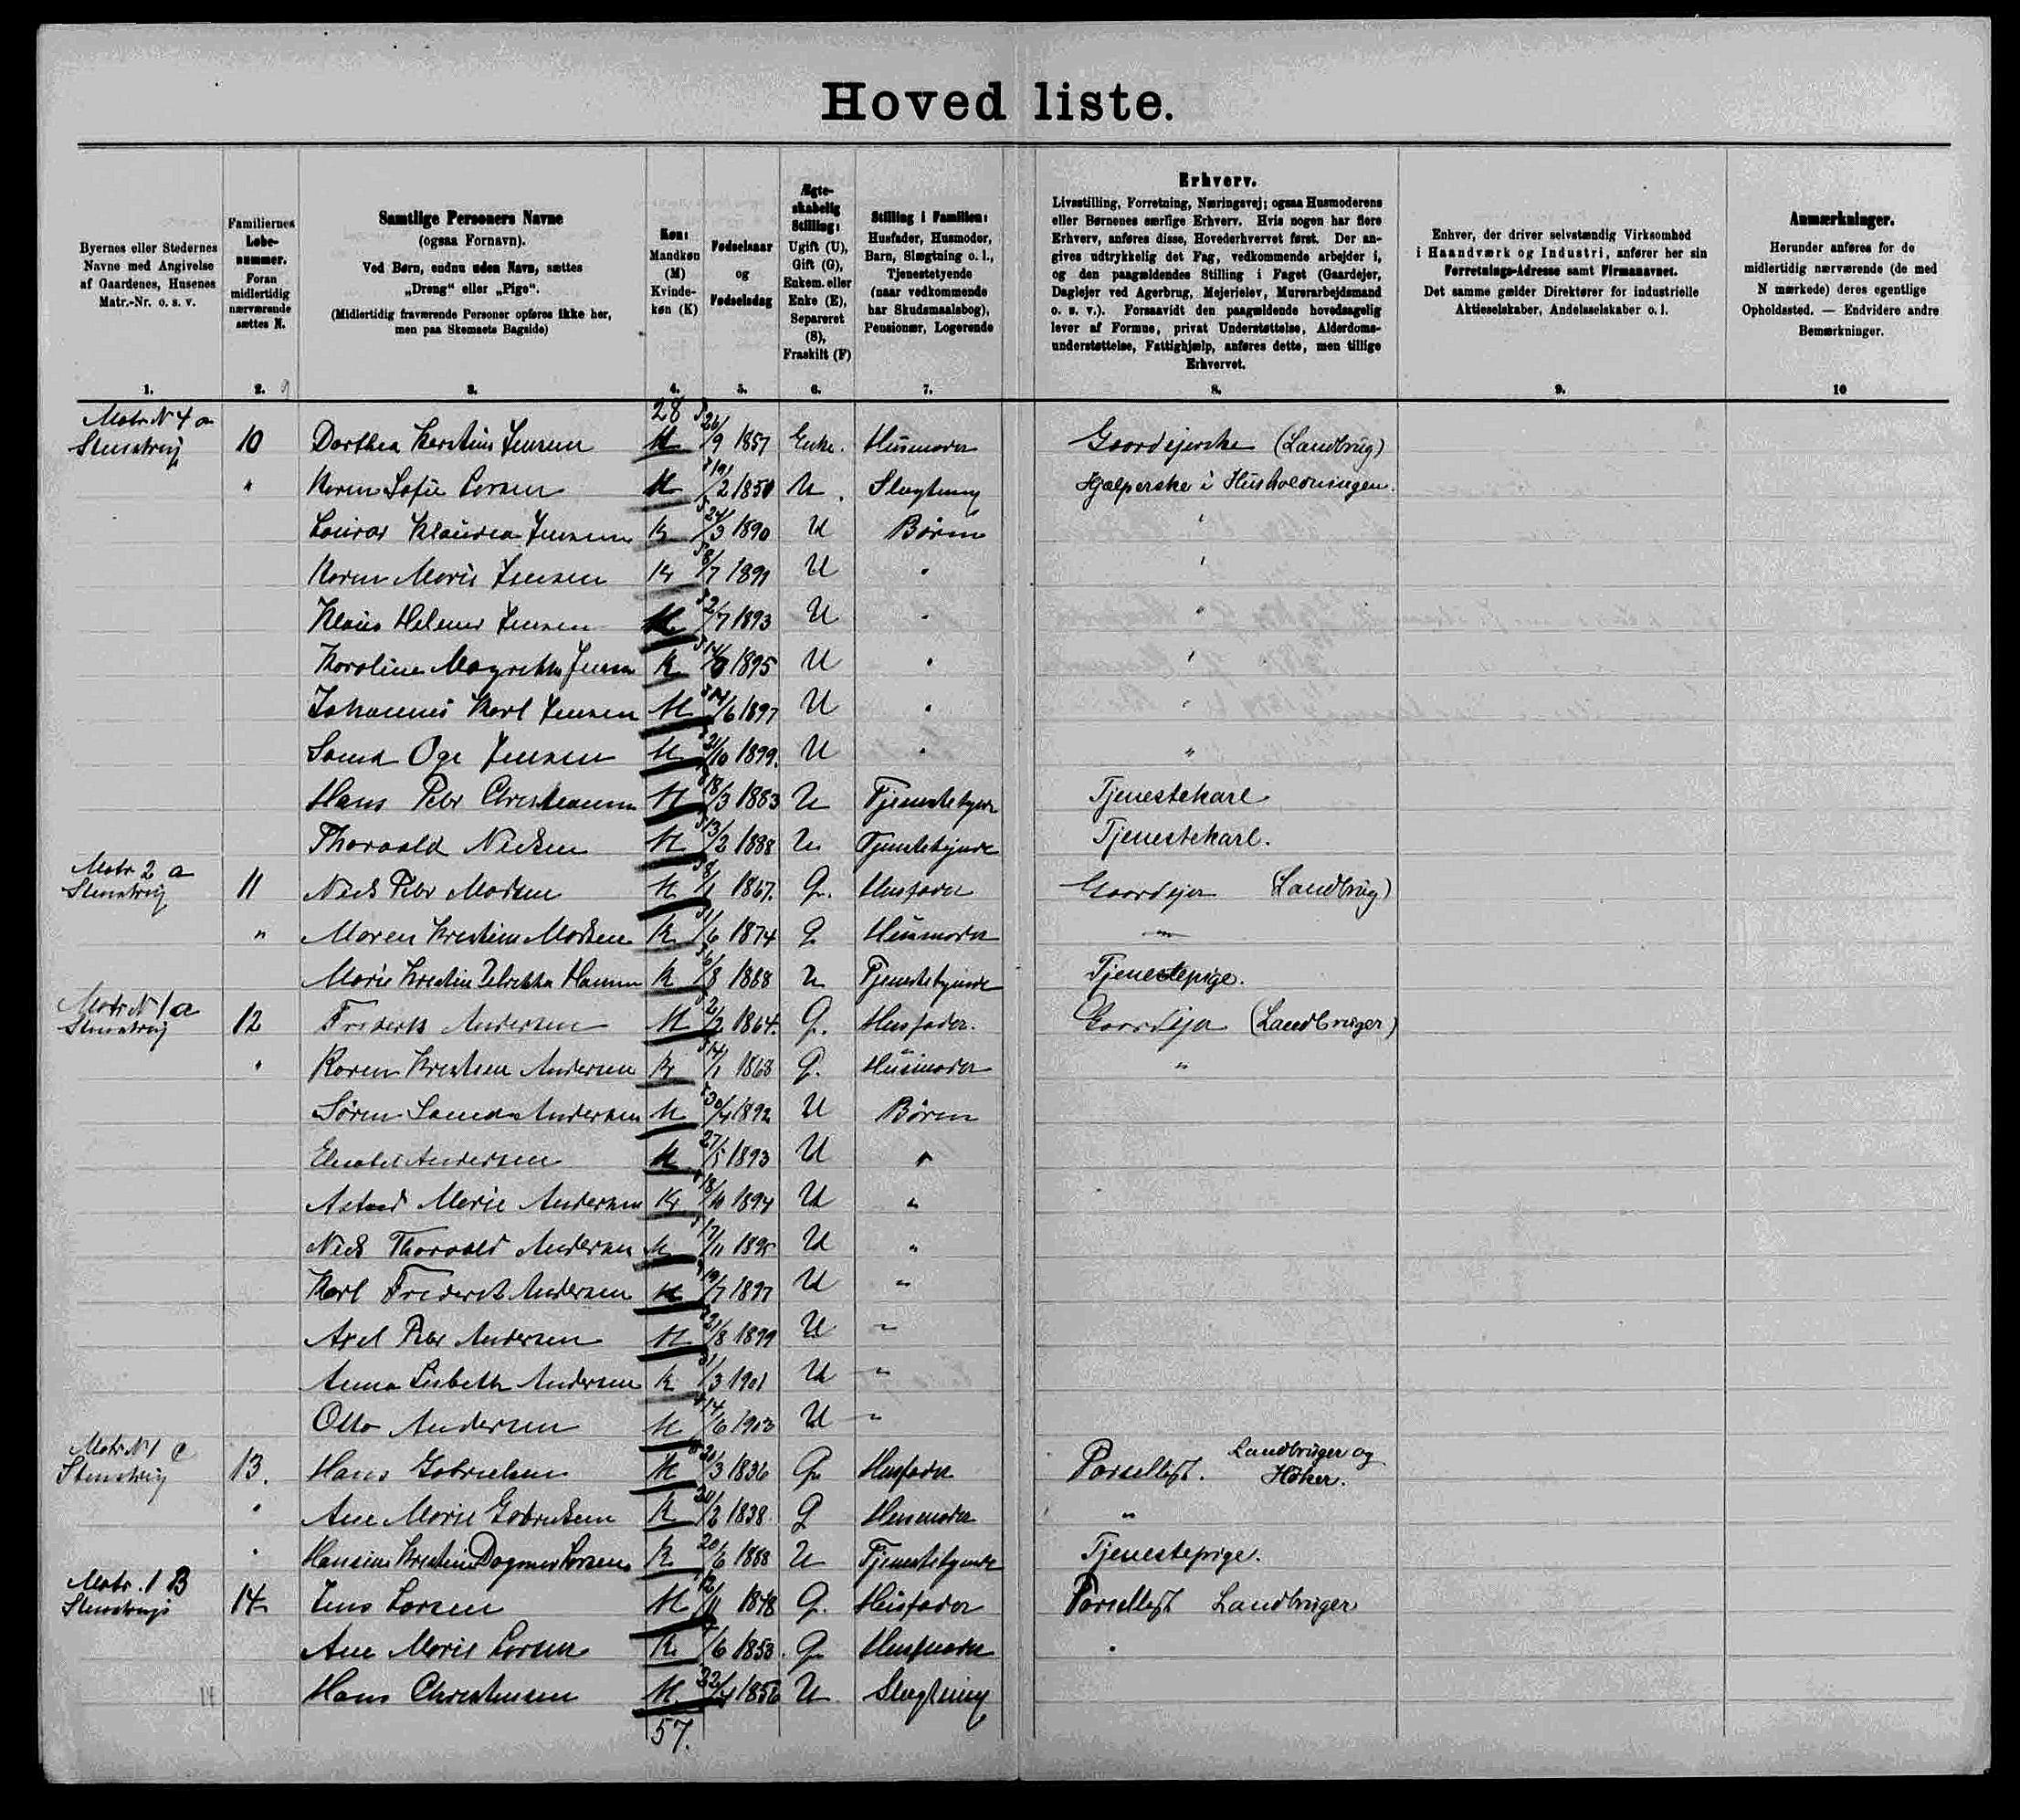 Hovedliste.
Byernes eller Stedernes Navne med Angivelse af Gaardenes, Husenes Matr.-Nr. o. s. v.
Familiernes Løbenummer. Foran midlertidig nærværende sættes N.
Samtlige Personers Navne (ogsaa Fornavn). Ved Børn, endnu uden Navn, sættes „Dreng" eller „Pige". (Midlertidig fraværende Personer opføres ikke her, men paa Skemaets Bagside)
Køn: Mandkøn (M) Kvindekøn (K)
Fødselsaar og Fødselsdag
Ægteskabelig Stilling: Ugift (U), Gift (G), Enkem. eller Enke (E), Separeret (S), Fraskilt (F)
Stilling i Familien: Husfader, Husmoder, Barn, Slægtning o. l., Tjenestetyende (naar vedkommende har Skudsmaalsbog), Pensionær, Logerende
Erhverv. Livsstilling, Forretning, Næringsvej; ogsaa Husmoderens eller Børnenes særlige Erhverv. Hvis nogen har flere Erhverv, anføres disse, Hovederhvervet først. Der angives udtrykkelig det Fag, vedkommende arbejder i, og den paagældendes Stilling i Faget (Gaardejer, Daglejer ved Agerbrug, Mejerielev, Murerarbejdsmand o. s. v.). Forsaavidt den paagældende hovedsagelig lever af Formue, privat Understøttelse, Alderdomsunderstøttelse, Fattighjælp, anføres dette, men tillige Erhvervet.
Enhver, der driver selvstændig Virksomhed i Haandværk og Industri, anfører her sin Forretnings-Adresse samt Firmanavnet. Det samme gælder Direktører for industrielle Aktieselskaber, Andelsselskaber o. l.
Anmærkninger. Herunder anføres for de midlertidig nærværende (de med N mærkede) deres egentlige Opholdssted. — Endvidere andre Bemærkninger.
1. 2. 3. 4. 5. 6. 7. 8. 9. 10
28
Matr N 4 a
Stenstrup 10 Dorthea Kerstine Jensen K 26/9 1857 Enke. Husmoder Gaardejerske (Landbrug)
" Karen Sofie Larsen K 19/2 1850 U. Slægtning Hjælperske i Husholdningen.
Laura Klaudia Jensen K 24/3 1890 U Børen "
Karen Marie Jensen K 8/7 1891 U " "
Klaus Helmer Jensen M 2/7 1893 U " "
Karoline Magrethe Jensen K 1895 U " "
Johannes Karl Jensen M 14/6 1897 U " "
Aage Jensen M 21/10 1899. U " "
Hans Peter Christiansen M 18/3 1883 U Tjenestetyende Tjenestekarl
Thorvald Nielsen M 13/2 1888 U Tjenestetyende Tjenestekarl.
Matr 2 a
Stenstrup 11 Niels Peter Madsen M 8/1 1867. G. Husfader Gaardejer (Landbrug)
" Maren Kristine Madsen K 1/6 1874 G Husmoder "
Marie Kristine Hansen K 6/8 1868 U Tjenestetyende Tjenestepige.
Matr N 1 a
Stenstrup 12 Frederik Andersen M 2/2 1864. G. Husfader. Gaardejer (Landbruger)
" Karen Kristine Andersen K 14/1 1868 G. Husmoder "
Søren Andersen M 30/4 1892 U Børen
Andersen K 27/5 1893 U "
Astrid Marie Andersen K 18/10 1894 U "
Niels Thorvald Andersen M 17/11 1895 U "
Karl Frederik Andersen M 19/7 1897 U "
Axel Peter Andersen M 21/8 1899 U "
Anna Lisbeth Andersen K 1/3 1901 U "
Otto Andersen M 14/6 1903 U "
Matr N 1 c
Stenstrup 13. Hans Gabrielsen M 20/3 1836 G Husfader Parsellist. Landbruger og Høker.
" Ane Marie Gabrielsen K 20/2 1838 G Husmoder "
" Hansine Kristine Dagmar Larsen K 20/6 1888 U Tjenestetyende Tjenestepige.
Matr. 1 B
Stenstrup 14 Jens Larsen M 12/11 1848 G. Husfader Parsellist Landbruger
Ane Marie Larsen K 1/6 1853. G Husmoder "
14 Hans Christensen M 1856 U Slægtning
57.